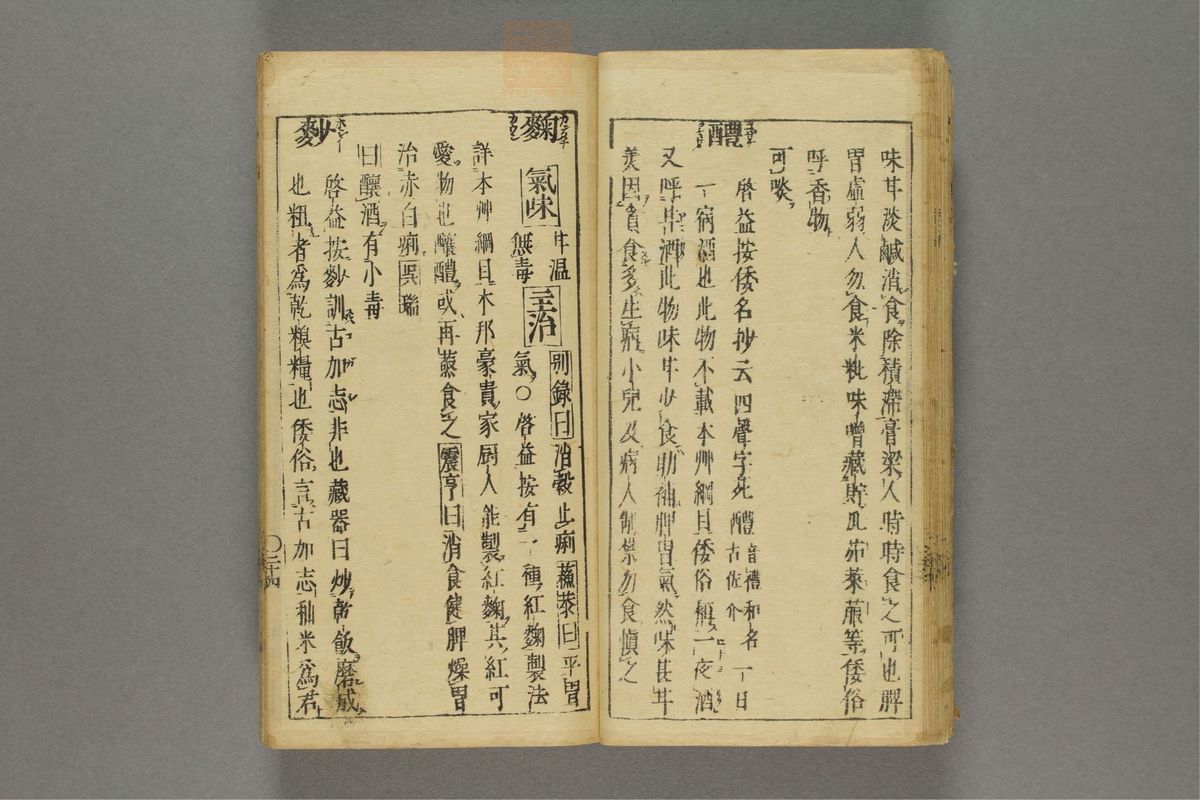 味甘淡鹹消食除積滯膏粱人時時食之可也脾
胃虛弱人勿食米粃味噌藏貯瓜茄萊菔等倭俗
呼香物
可啖
醴
啓益按倭名抄云四聲字苑醴音禮和名古佐介一日
一宿酒也此物不載本艸綱目倭俗稱一夜酒
又呼甘酒此物味甘少食助補脾胃氣然味甚甘
美因貪食多生病小兒及病人制禁勿食愼之
麴
氣味甘温無毒主治別錄曰消穀止痢藏器曰平胃
氣○啓益按有一種紅麴製法
詳本艸綱目本邦豪貴家厨人能製紅麴其紅可
愛物也釀醴或再蒸食之震亨曰消食健脾燥胃
治赤白痢吳瑞
曰釀酒有小毒
麨
啓益按麨訓古加志非也藏器曰炒乾飯磨成
也粗者爲乾糗糧也倭俗言古加志秈米爲君
〇三十四